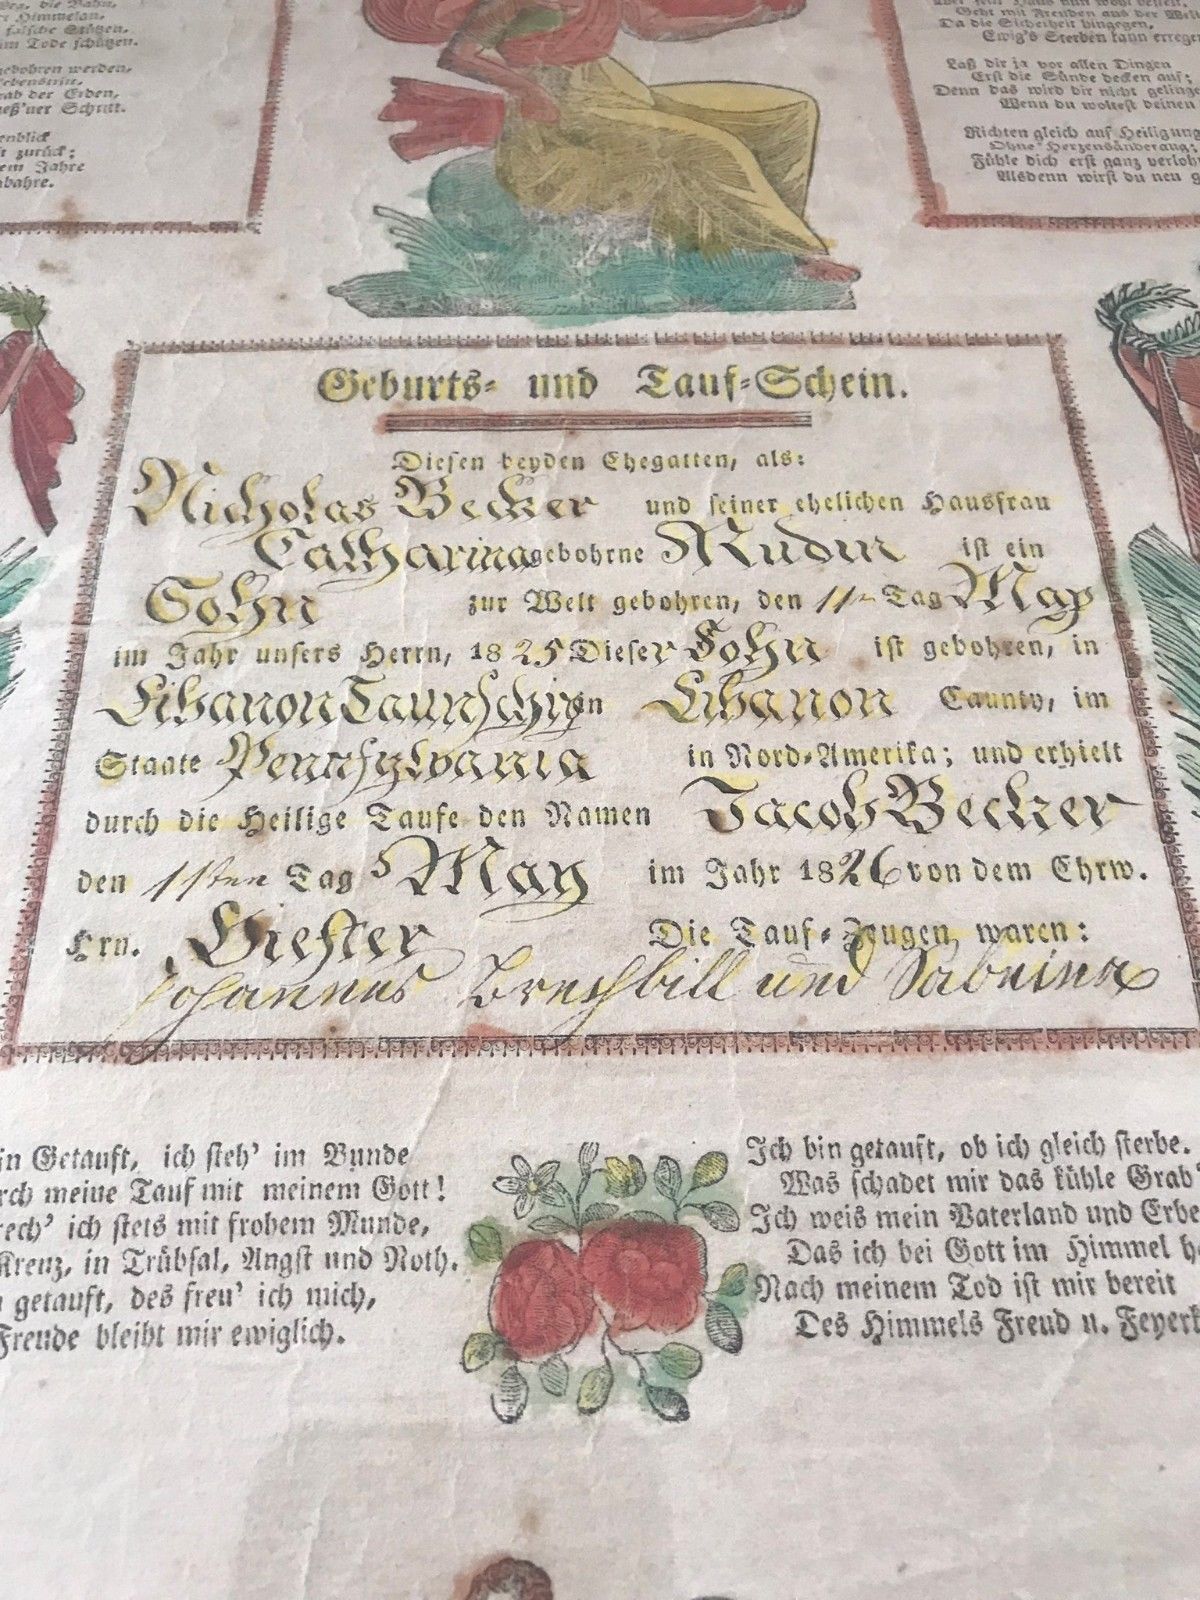 Weg, die Bahn,
Himmelan,
falsche Stützen,
im Tode schützen.
gebohren werden,
Lebenstritt,
Grab der Erden,
Schritt.
enblick
zurück;
Jahre
Geht mit Freuden aus der
Da die Sicherheit hingegen,
Ewig's Sterben kann
Laß dir ja vor allen Dingen
Erst die Sünde decken auf;
Denn das wird dir nicht
Wenn du woltest deinen
Richten gleich auf Heiligung
Ohne Herzensänderung;
Fühle dich erst ganz
Alsdenn wirst du neu
Geburts- und Tauf-Schein.
Diesen beyden Ehegatten, als:
Nicholas Becker und seiner ehelichen Hausfrau
Catharina gebohrne Rudin ist ein
Sohn zur Welt gebohren, den 11ten Tag May
im Jahr unsers Herrn, 1825 Dieser Sohn ist gebohren, in
Libanon Taunschip in Libanon Caunty, im
Staate Pennsylvania in Nord-Amerika; und erhielt
durch die Heilige Taufe den Namen Jacob Becker
den 1sten Tag May im Jahr 1826 von dem Ehrw.
Hrn. Hiester Die Tauf-Zeugen waren:
Johannes Brechbill und Sabeina
Getauft, ich steh' im Bunde
meine Tauf mit meinem Gott!
ich stets mit frohem Munde,
Kreuz, in Trübsal, Angst und Noth.
getauft, des freu' ich mich,
Freude bleibt mir ewiglich.
Ich bin getauft, ob ich gleich sterbe.
Was schadet mir das kühle Grab
Ich weis mein Vaterland und Erbe
Das ich bei Gott im Himmel
Nach meinem Tod ist mir bereit
Des Himmels Freud u.